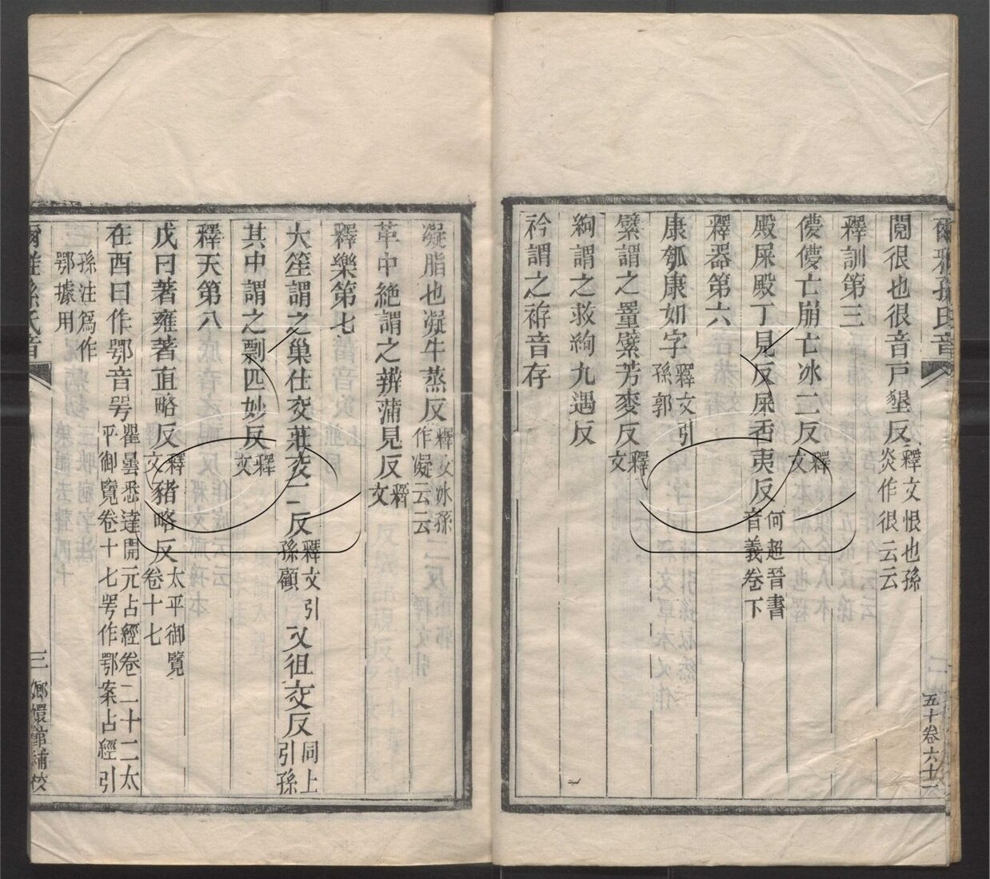 爾雅孫氏音
五十卷六十二
閱很也很音戸墾反釋文恨也孫炎作很云云
釋訓第三
儚儚亡崩亡冰二反釋文
殿屎殿丁見反屎香夷反何超晉書音義卷下
釋器第六
康瓠康如字釋文引孫郭
繴謂之罿繴芳麥反釋文
絇謂之救絇九遇反
衿謂之袸音存
凝脂也凝牛蒸反釋文冰孫作凝云云
革中絶謂之辨蒲見反釋文
釋樂第七
大笙謂之巢仕交莊交二反釋文引孫顧又徂交反同上引孫
其中謂之剽匹妙反釋文
釋天第八
戊曰著雍著直略反釋文豬略反太平御覽卷十七
在酉曰作鄂音咢瞿曇悉達開元占經卷二十二太平御覽卷十七咢作鄂案占經引
孫注爲作鄂據用
爾雅孫氏音
三
嫏嬛館補校